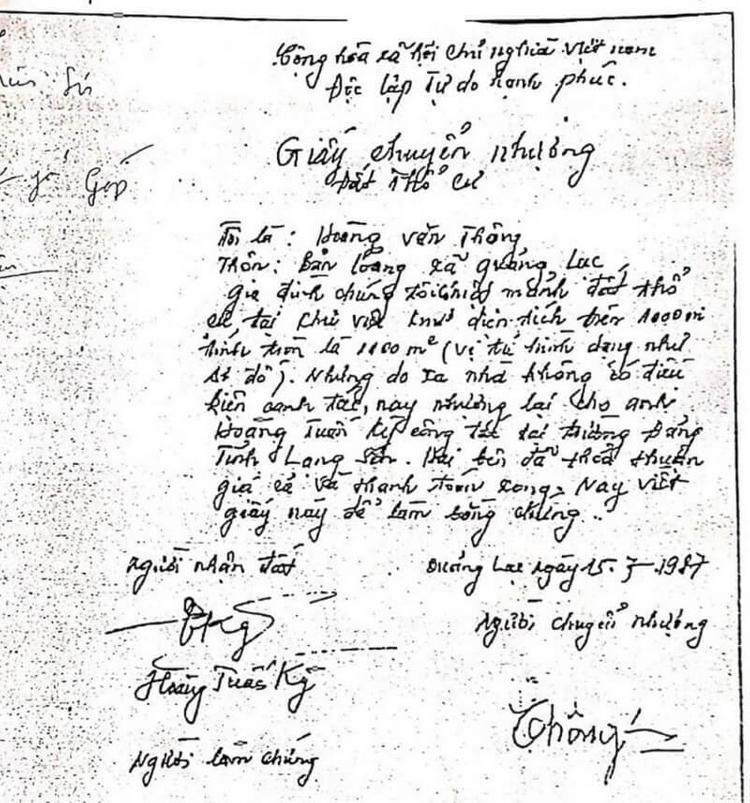 Cộng hòa xã hội chủ nghĩa Việt nam
Độc lập Tự do hạnh phúc.
Giấy chuyển nhượng
Đất thổ cư
Tôi là : Hoàng Văn Thông
Thôn: Bản Loỏng xã Quảng Lạc
gia đình chúng tôi có mảnh đất thổ
cư, tại khu vực diện tích trên
tính tròn là 1100 m² (vị trí hình dạng như
sơ đồ). Nhưng do xa nhà không có điều
kiện canh tác, nay nhượng lại cho anh
Hoàng Tuấn Kỳ công tác tại trường Đảng
Tỉnh Lạng Sơn. Hai bên đã thoả thuận
giá cả và thanh toán xong, Nay viết
giấy này để làm bằng chứng.
Người nhận đất
Quảng Lạc ngày 15. 7 - 1987
Người chuyển nhượng
Hoàng Tuấn Kỳ
Thông
Người làm chứng